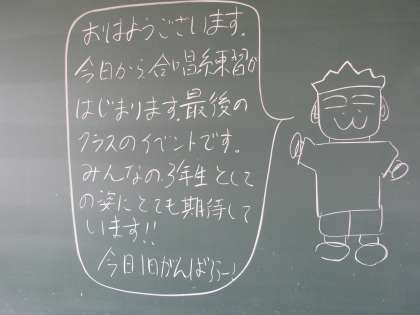 おはようございます。
今日から合唱練習が
はじまります。最後の
クラスのイベントです。
みんなの3年生として
の姿にとても期待して
います!!
今日1日がんばろう〜